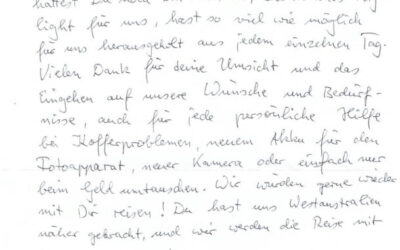 hattest Du
light für uns, hast so viel wie möglich
für uns herausgeholt aus jedem einzelnen Tag.
Vielen Dank für deine Umsicht und das
Eingehen auf unsere Wünsche und Bedürf-
nisse, auch für jede persönliche Hilfe
bei Kofferproblemen, neuem Akku für den
Fotoapparat, neuer Kamera oder einfach nur
beim Geld umtauschen. Wir würden gerne wieder
mit Dir reisen! Du hast uns Westaustralien
näher gebracht, und wir werden die Reise mit